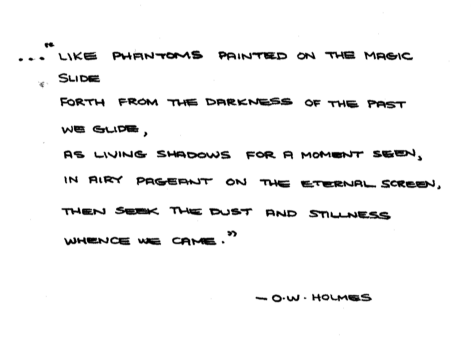 ..."LIKE PHANTOMS PAINTED ON THE MAGIC
SLIDE
FORTH FROM THE DARKNESS OF THE PAST
WE GLIDE,
AS LIVING SHADOWS FOR A MOMENT SEEN,
IN AIRY PAGEANT ON THE ETERNAL SCREEN,
THEN SEEK THE DUST AND STILLNESS
WHENCE WE CAME."
— O.W. HOLMES